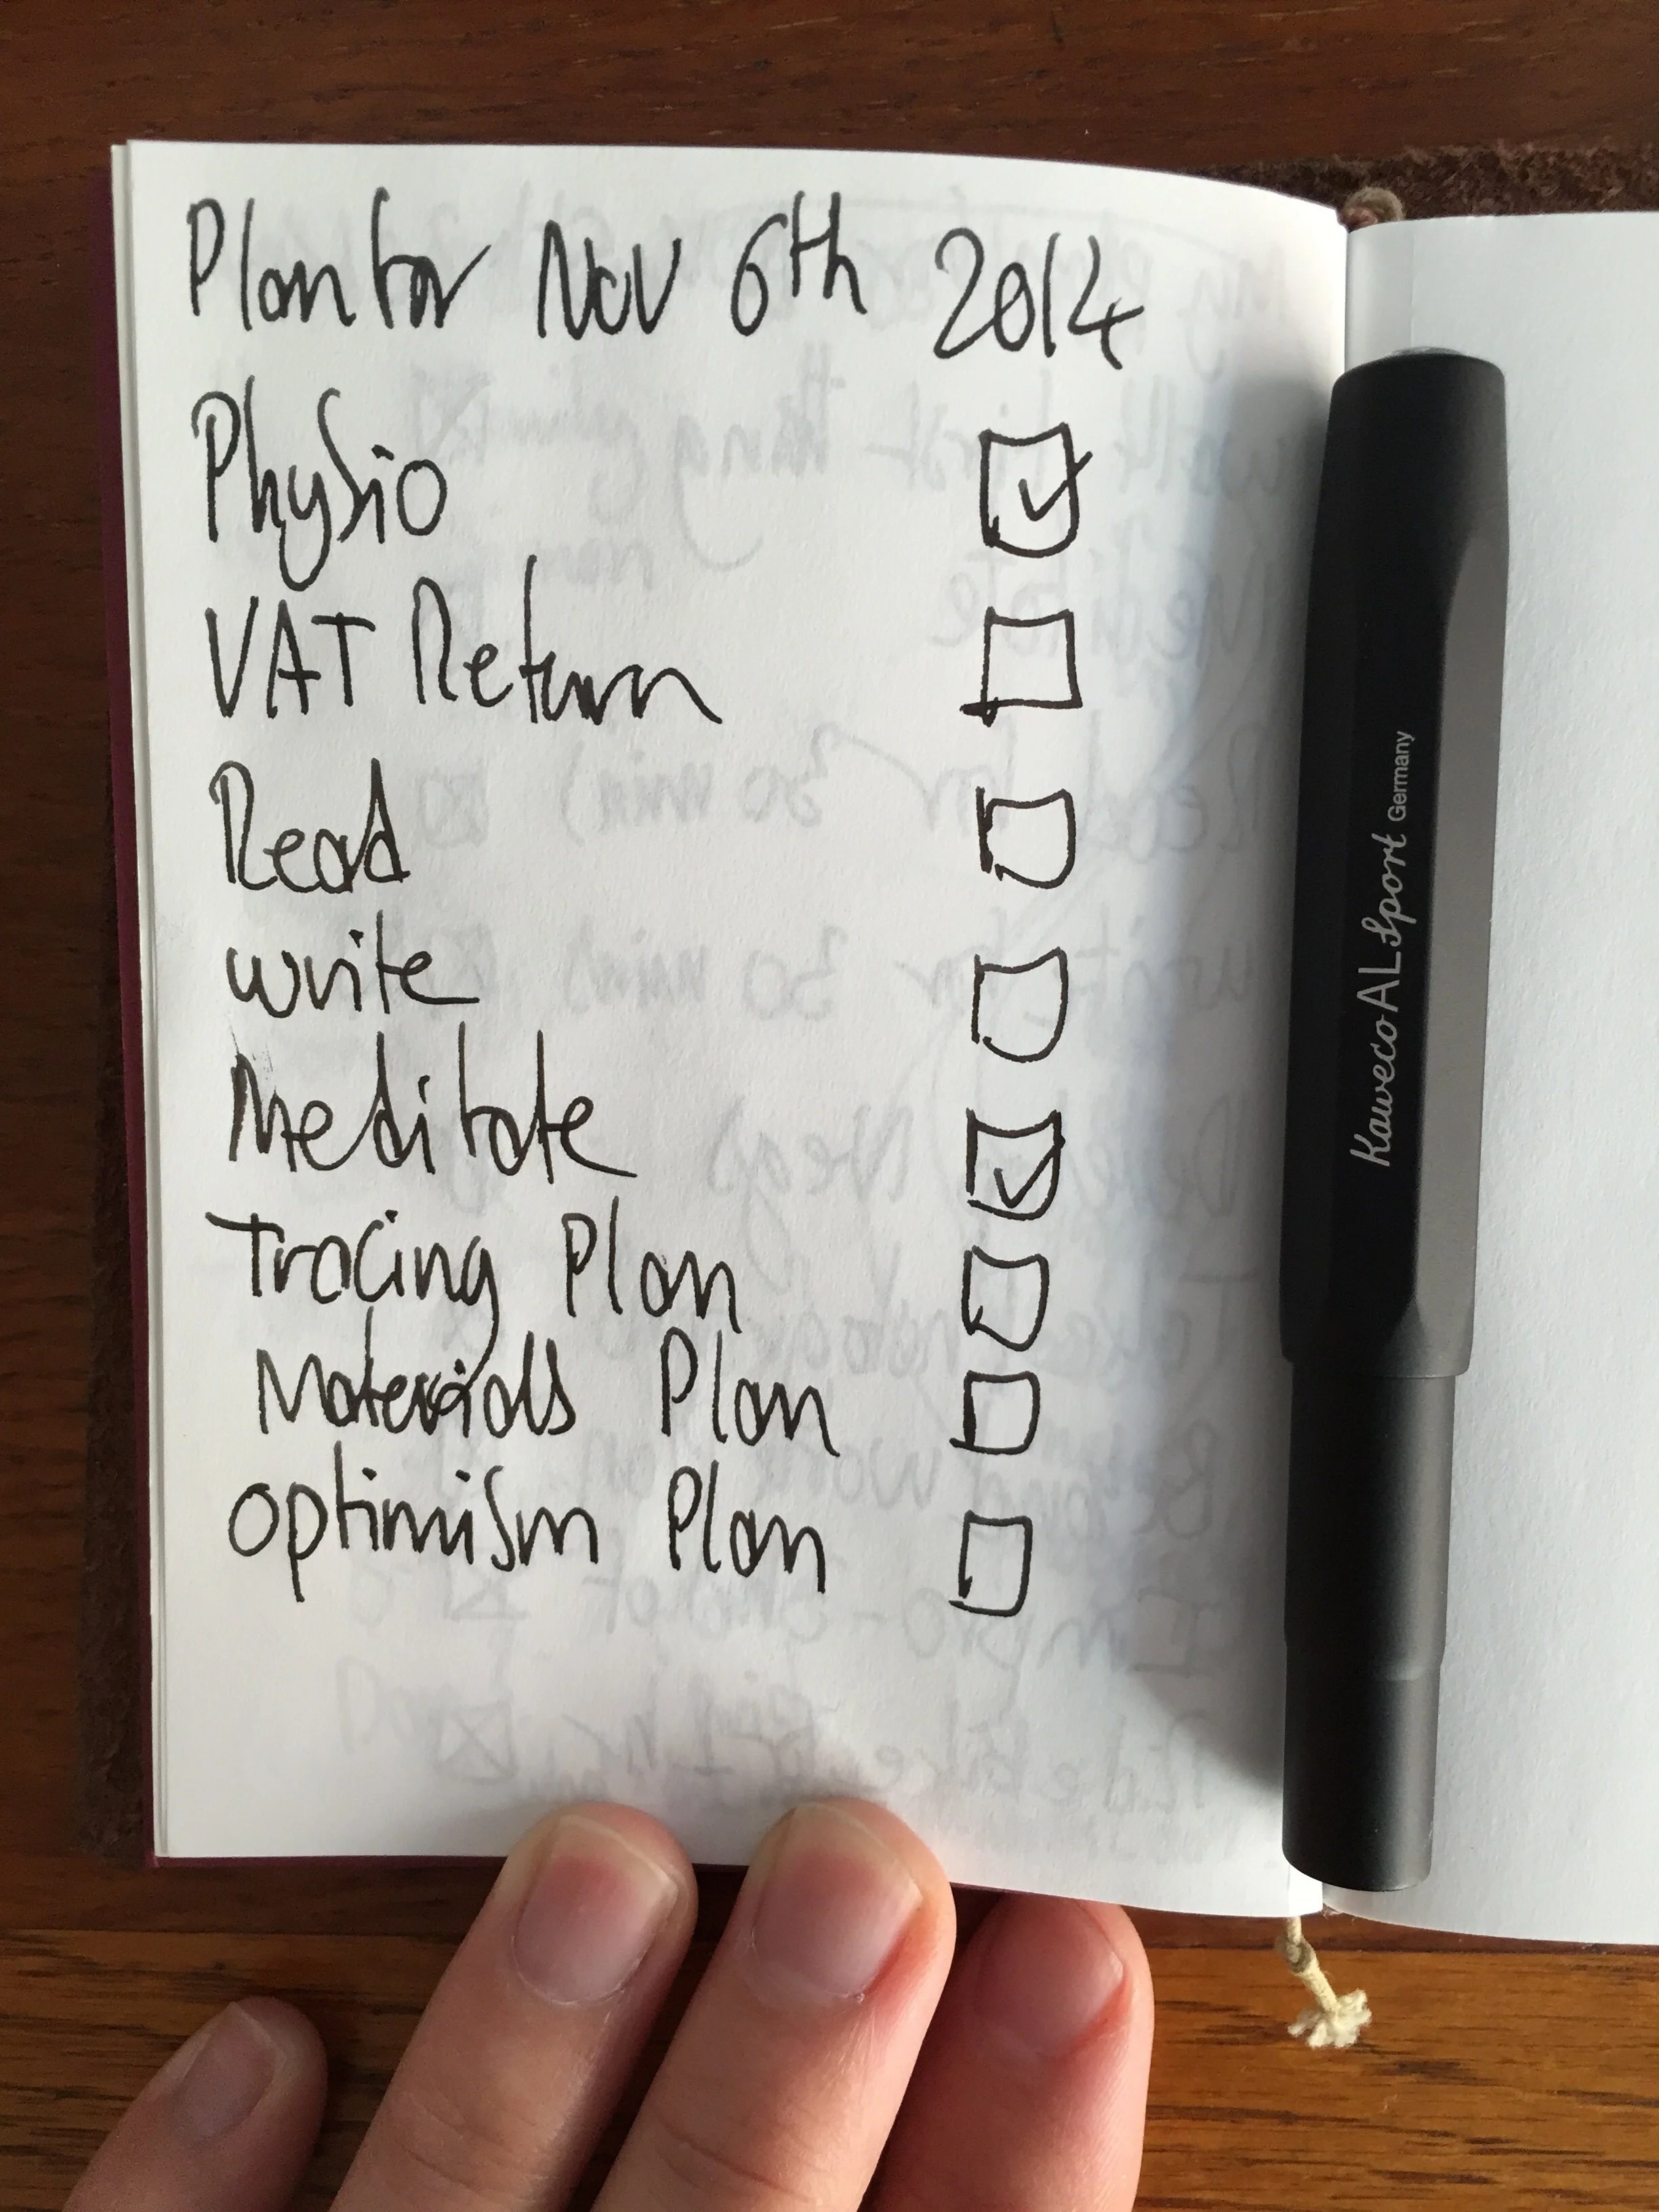 Plan for Nov 6th 2014
Physio
VAT Return
Read
write
Meditate
Tracing Plan
Materials Plan
optimism Plan
Kaweco AL Sport Germany